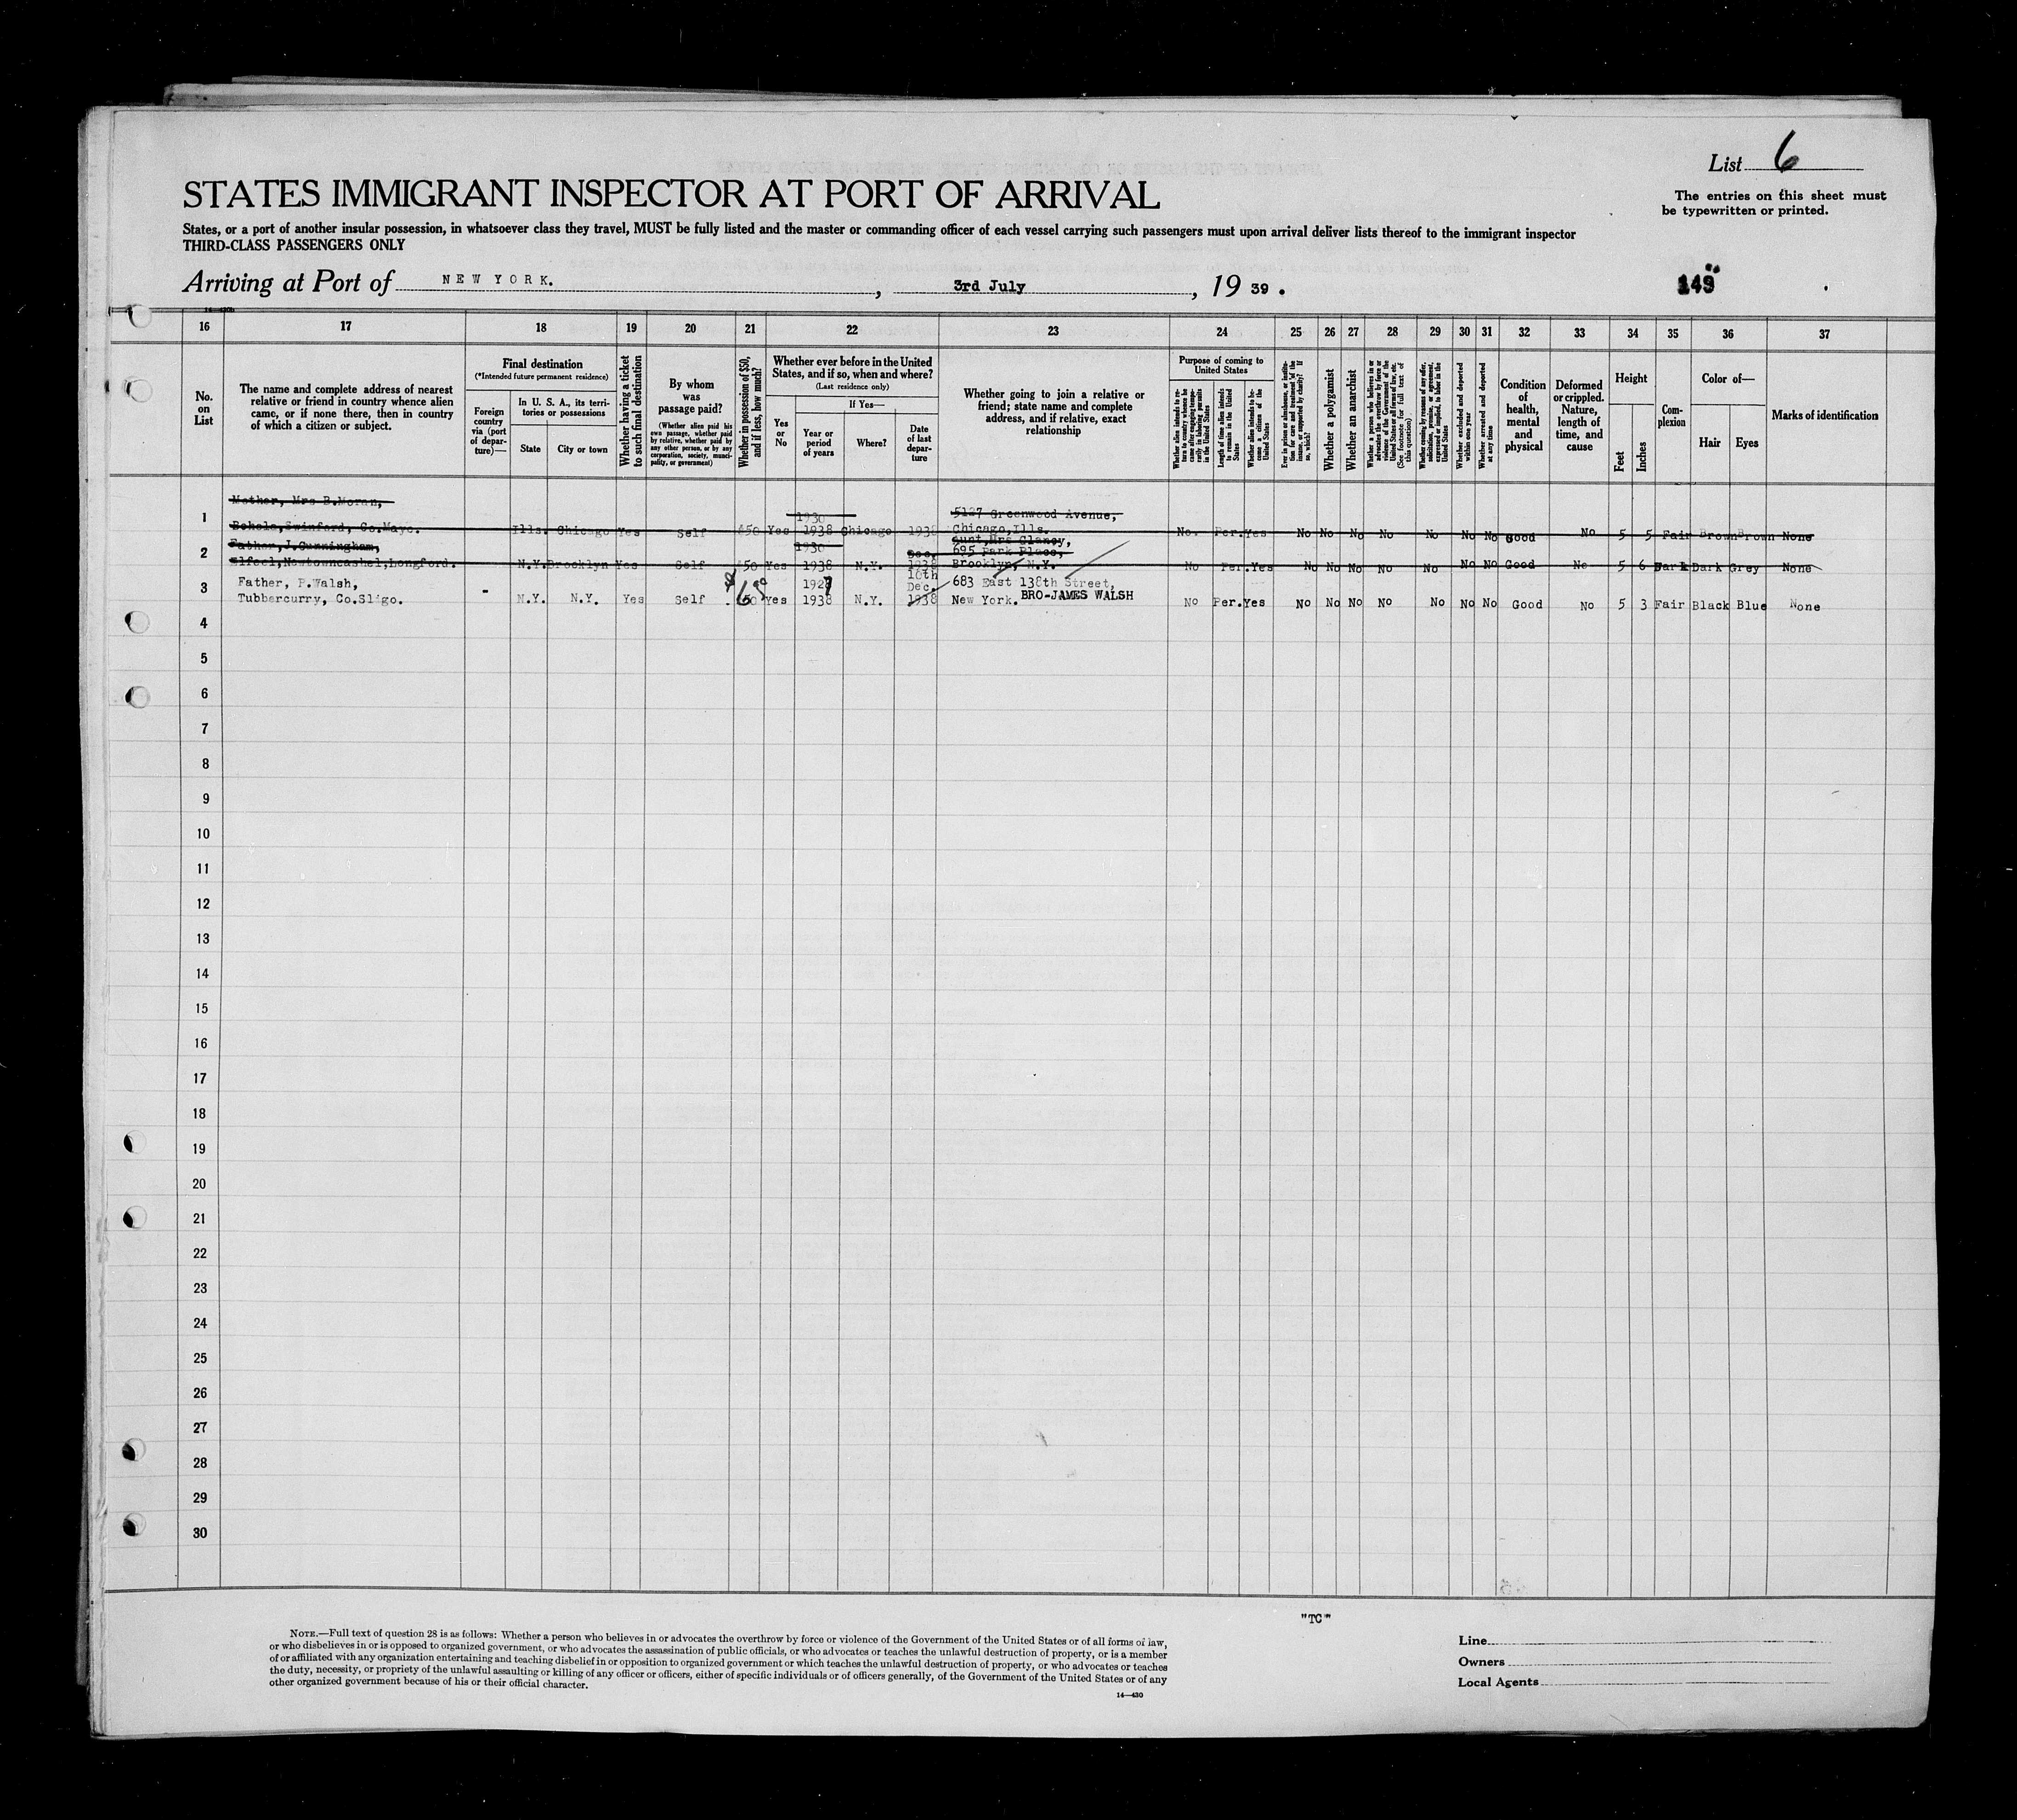 List 6
The entries on this sheet must
be typewritten or printed.
STATES IMMIGRANT INSPECTOR AT PORT OF ARRIVAL
States, or a port of another insular possession, in whatsoever class they travel, MUST be fully listed and the master or commanding officer of each vessel carrying such passengers must upon arrival deliver lists thereof to the immigrant inspector
THIRD-CLASS PASSENGERS ONLY
Arriving at Port of NEW YORK. , 3rd July , 19 39 .
149
16 17 18 19 20 21 22 23 24 25 26 27 28 29 30 31 32 33 34 35 36 37
No.
on
List
The name and complete address of nearest
relative or friend in country whence alien
came, or if none there, then in country
of which a citizen or subject.
Final destination
(*Intended future permanent residence)
Foreign
country
via (port
of depar-
ture)—
In U. S. A., its terri-
tories or possessions
State
City or town
Whether having a ticket
to such final destination
By whom
was
passage paid?
(Whether alien paid his
own passage, whether paid
by relative, whether paid by
any other person, or by any
corporation, society, munici-
pality, or government)
Whether in possession of $50,
and if less, how much?
Whether ever before in the United
States, and if so, when and where?
(Last residence only)
Yes
or
No
If Yes—
Year or
period
of years
Where?
Date
of last
depar-
ture
Whether going to join a relative or
friend; state name and complete
address, and if relative, exact
relationship
Purpose of coming to
United States
Whether alien intends to re-
turn to country whence he
came after engaging tempo-
rarily in laboring pursuits
in the United States
Length of time alien intends
to remain in the United
States
Whether alien intends to be-
come a citizen of the
United States
Ever in prison or almshouse, or institu-
tion for care and treatment of the
insane, or supported by charity? If
so, which?
Whether a polygamist
Whether an anarchist
Whether a person who believes in or
advocates the overthrow by force or
violence of the Government of the
United States or all forms of law, etc.
(See footnote for full text of
this question)
Whether coming by reasons of any offer,
solicitation, promise, or agreement,
expressed or implied, to labor in the
United States
Whether excluded and deported
within one year
Whether arrested and deported
at any time
Condition
of
health,
mental
and
physical
Deformed
or crippled.
Nature,
length of
time, and
cause
Height
Feet
Inches
Com-
plexion
Color of—
Hair
Eyes
Marks of identification
1 Mother, Mrs B.Moran, 1930 5127 Greenwood Avenue,
Bohola,Swinford, Co.Mayo. Ills. Chicago Yes Self $50 Yes 1938 Chicago 1938 Chicago,Ills. No. Per. Yes No No No No No No No Good No 5 5 Fair Brown Brown None
2 Father,J.Cunningham, 1930 Dec, Aunt,Mrs Clancy, 695 Park Place,
Elfeel,Newtowncashel,Longford. N.Y. Brooklyn Yes Self $50 Yes 1938 N.Y. 1938 Brooklyn, N.Y. No Per. Yes No No No No No No No Good No 5 6 Dark Dark Grey None
3 Father, P.Walsh, 1927 16th Dec. 683 East 138th Street,
Tubbercurry, Co.Sligo. - N.Y. N.Y. Yes Self Yes 1938 N.Y. 1938 New York. BRO-JAMES WALSH No Per. Yes No No No No No No No Good No 5 3 Fair Black Blue None
4
5
6
7
8
9
10
11
12
13
14
15
16
17
18
19
20
21
22
23
24
25
26
27
28
29
30
"TC"
NOTE.—Full text of question 28 is as follows: Whether a person who believes in or advocates the overthrow by force or violence of the Government of the United States or of all forms of law,
or who disbelieves in or is opposed to organized government, or who advocates the assassination of public officials, or who advocates or teaches the unlawful destruction of property, or is a member
of or affiliated with any organization entertaining and teaching disbelief in or opposition to organized government or which teaches the unlawful destruction of property, or who advocates or teaches
the duty, necessity, or propriety of the unlawful assaulting or killing of any officer or officers, either of specific individuals or of officers generally, of the Government of the United States or of any
other organized government because of his or their official character.
14—430
Line
Owners
Local Agents